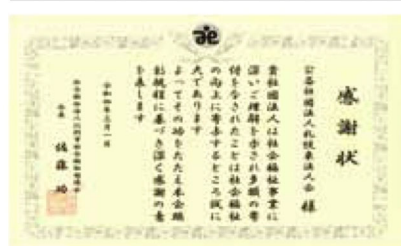 感謝状
公益社団法人札幌東法人会 様
貴社団法人は社会福祉事業に
深いご理解を示され多額の寄
付を今されたことは社会福祉
の向上に寄与するところ誠に
大であります
よってその功をたたえ本会顕
彰規程に基づき深く感謝の意
を表します
令和四年三月一日
会長